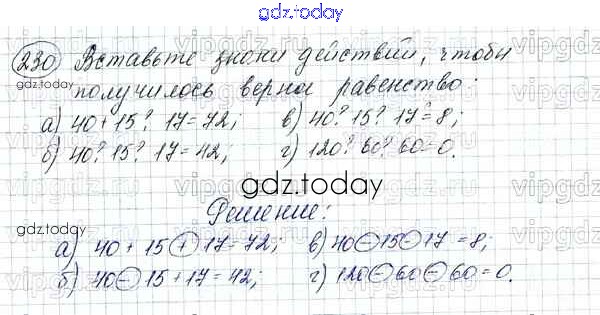 gdz.today
230 Вставьте знаки действий, чтобы
получилось верно равенство:
а) 40 + 15 ? 17 = 72; в) 40 ? 15 ? 17 = 8;
б) 40 ? 15 ? 17 = 42; г) 120 ? 60 ? 60 = 0.
gdz.today
gdz.today
Решение:
gdz.today
а) 40 + 15 + 17 = 72; в) 40 - 15 - 17 = 8;
б) 40 - 15 + 17 = 42; г) 120 - 60 - 60 = 0.